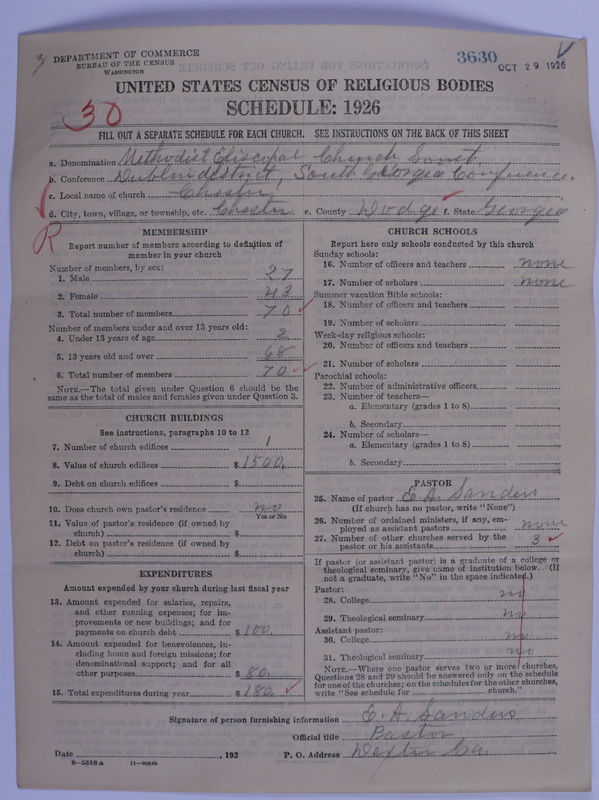 3
DEPARTMENT OF COMMERCE
BUREAU OF THE CENSUS
WASHINGTON
3630
OCT 29 1926
UNITED STATES CENSUS OF RELIGIOUS BODIES
SCHEDULE: 1926
30
FILL OUT A SEPARATE SCHEDULE FOR EACH CHURCH. SEE INSTRUCTIONS ON THE BACK OF THIS SHEET
a. Denomination Methodist Episcopal Church South
b. Conference Dublin district, South Georgia Conference.
c. Local name of church Chester
d. City, town, village, or township, etc. Chester e. County Dodge f. State Georgia
R
MEMBERSHIP
Report number of members according to definition of
member in your church
Number of members, by sex:
1. Male 27
2. Female 43
3. Total number of members 70
Number of members under and over 13 years old:
4. Under 13 years of age 2
5. 13 years old and over 68
6. Total number of members 70
NOTE.—The total given under Question 6 should be the
same as the total of males and females given under Question 3.
CHURCH BUILDINGS
See instructions, paragraphs 10 to 12
7. Number of church edifices 1
8. Value of church edifices $ 1500.
9. Debt on church edifices $
10. Does church own pastor's residence no
Yes or No
11. Value of pastor's residence (if owned by
church) $
12. Debt on pastor's residence (if owned by
church) $
EXPENDITURES
Amount expended by your church during last fiscal year
13. Amount expended for salaries, repairs,
and other running expenses; for im-
provements or new buildings; and for
payments on church debt $ 100.
14. Amount expended for benevolences, in-
cluding home and foreign missions; for
denominational support; and for all
other purposes $ 80.
15. Total expenditures during year $ 180.
CHURCH SCHOOLS
Report here only schools conducted by this church
Sunday schools:
16. Number of officers and teachers none
17. Number of scholars none
Summer vacation Bible schools:
18. Number of officers and teachers
19. Number of scholars
Week-day religious schools:
20. Number of officers and teachers
21. Number of scholars
Parochial schools:
22. Number of administrative officers
23. Number of teachers—
a. Elementary (grades 1 to 8)
b. Secondary
24. Number of scholars—
a. Elementary (grades 1 to 8)
b. Secondary
PASTOR
25. Name of pastor E. A. Sanders
(If church has no pastor, write "None")
26. Number of ordained ministers, if any, em-
ployed as assistant pastors none
27. Number of other churches served by the
pastor or his assistants 3
If pastor (or assistant pastor) is a graduate of a college or
theological seminary, give name of institution below. (If
not a graduate, write "No" in the space indicated.)
Pastor:
28. College no
29. Theological seminary no
Assistant pastor:
30. College no
31. Theological seminary no
NOTE.—Where one pastor serves two or more churches,
Questions 28 and 29 should be answered only on the schedule
for one of the churches; on the schedules for the other churches,
write "See schedule for church."
Signature of person furnishing information E. A. Sanders
Official title Pastor
Date , 192 P. O. Address Dexter Ga.
8—5518 a